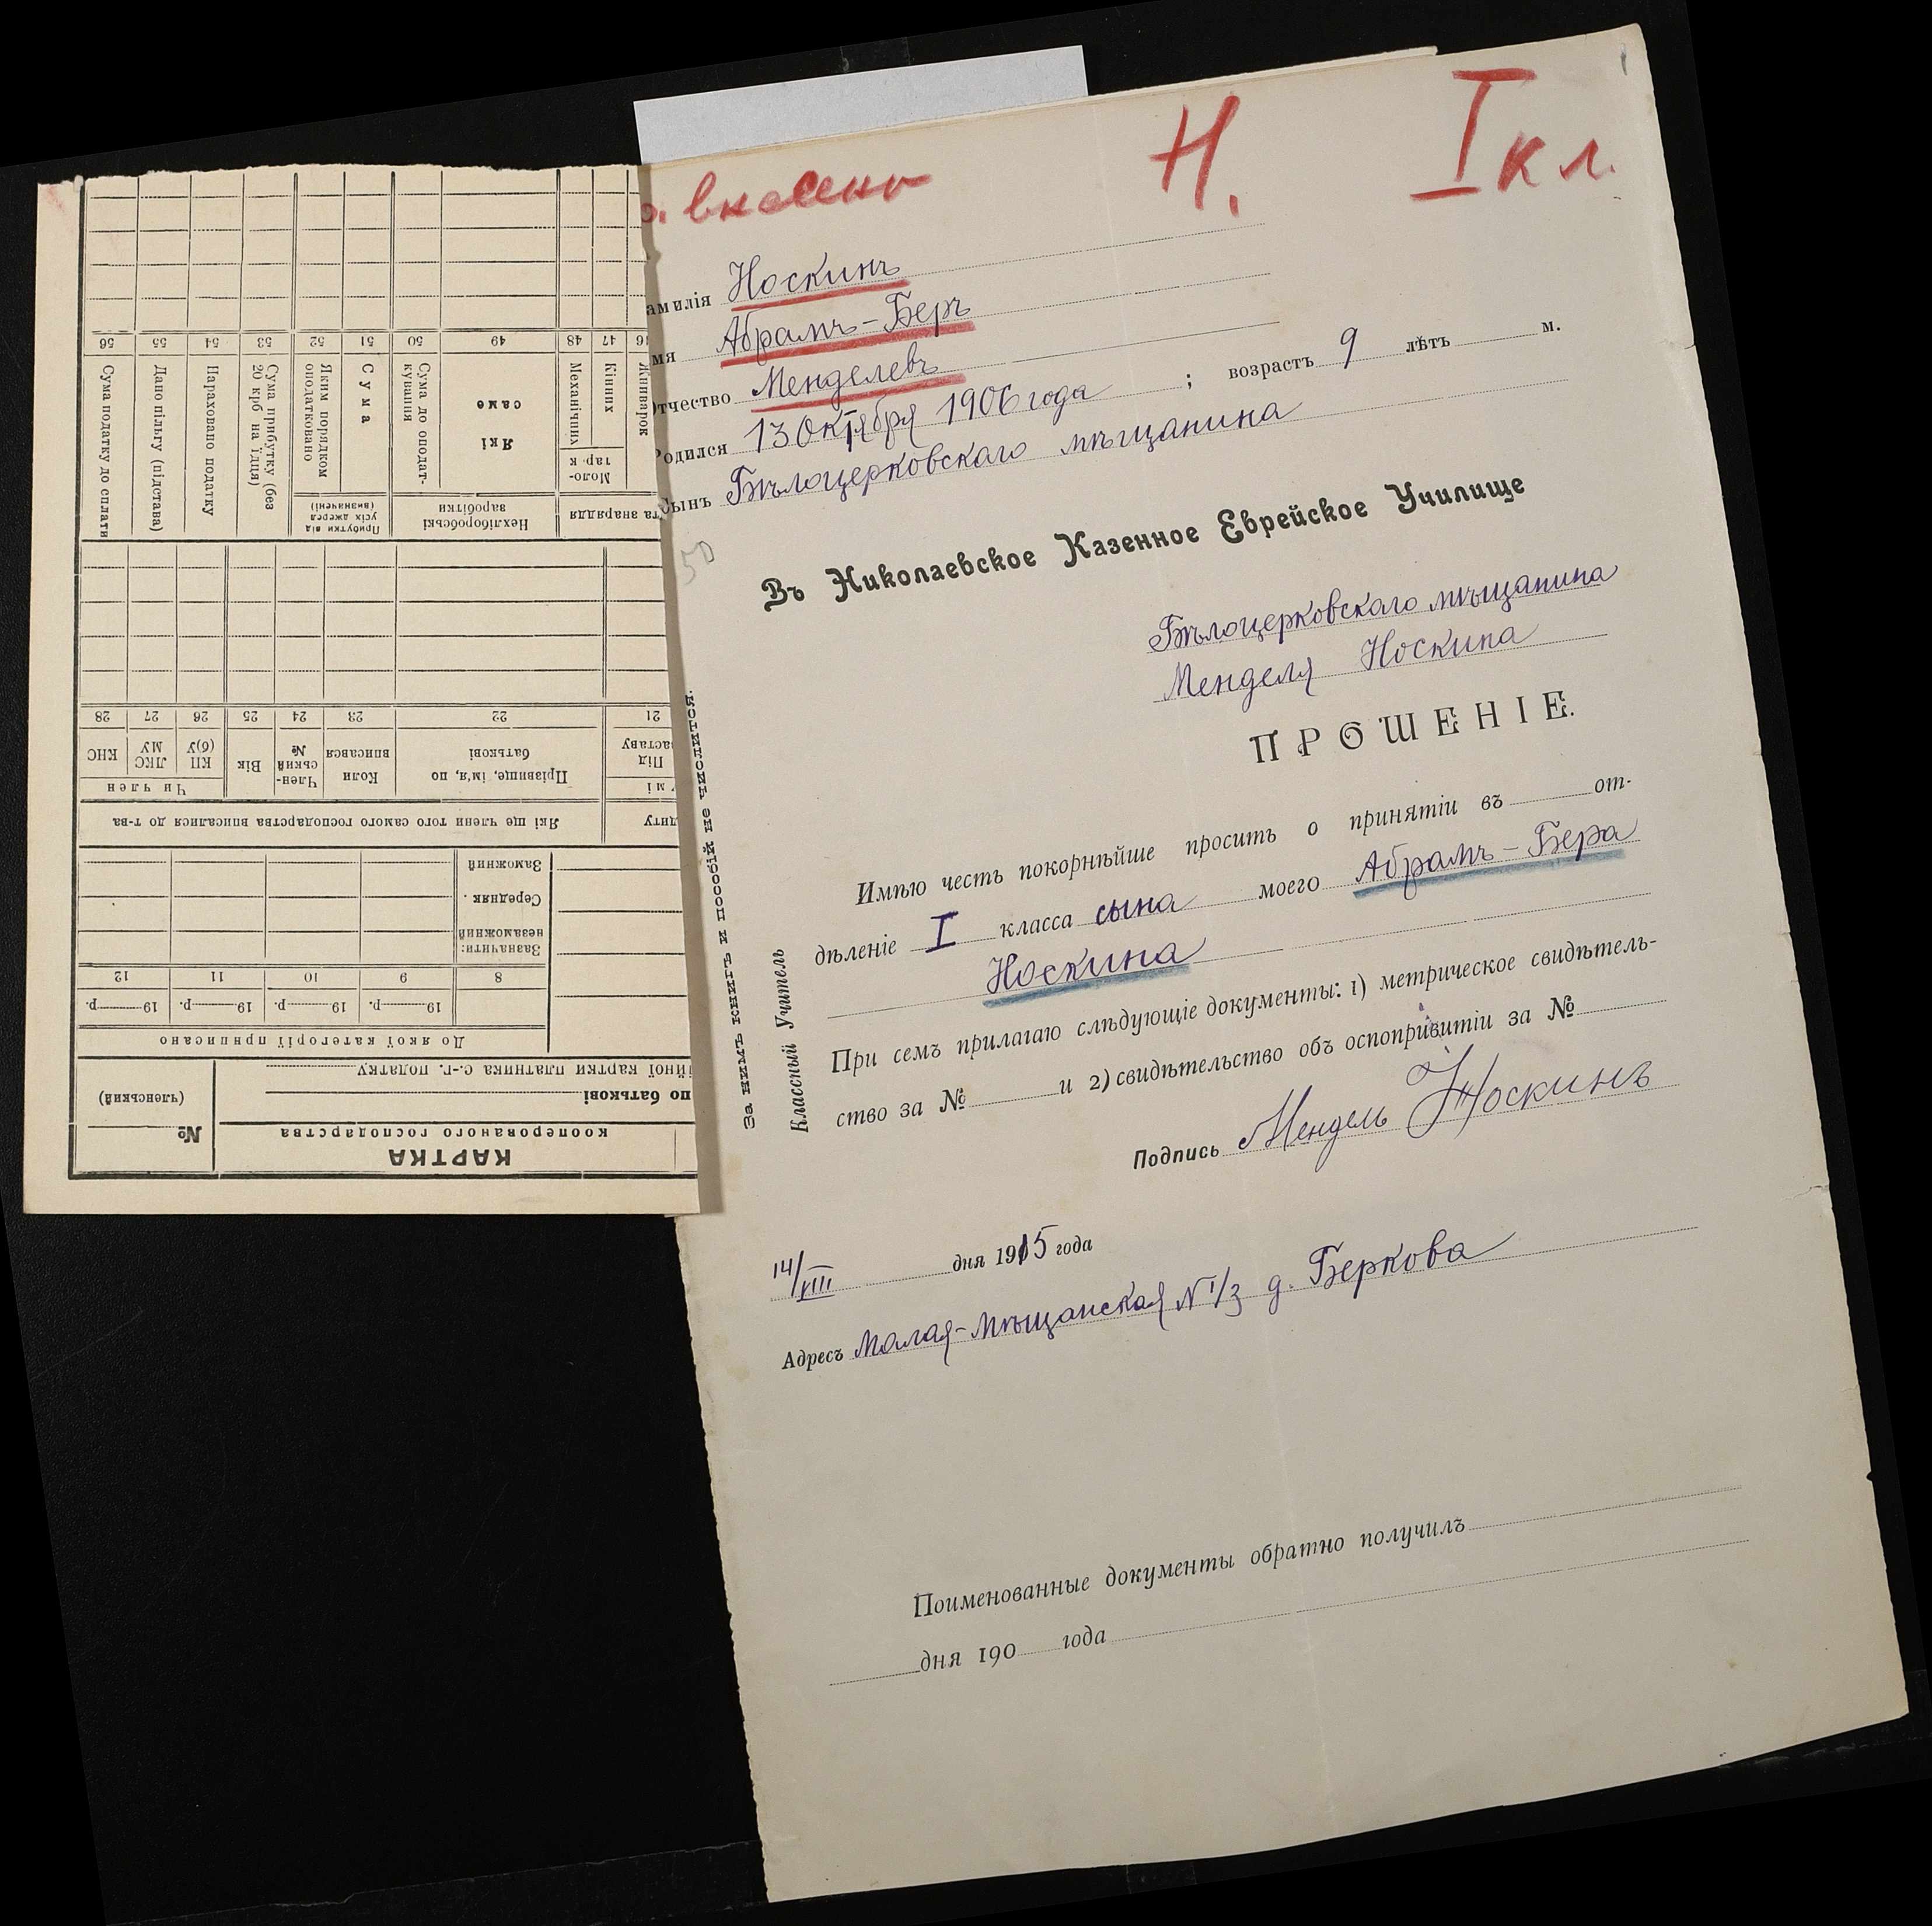 внесено Н. I кл.
амилія Носкинъ
мя Абрамъ-Беръ
Отчество Менделевъ
Родился 13 Октября 1906 года ; возрастъ 9 лѣтъ м.
Сынъ Бѣлоцерковскаго мѣщанина
Въ Николаевское Казенное Еврейское Училище
Бѣлоцерковскаго мѣщанина
Менделя Носкина
ПРОШЕНІЕ.
Имѣю честь покорнѣйше просить о принятіи въ от-
дѣленіе I класса сына моего Абрамъ-Бера
Носкина
При семъ прилагаю слѣдующіе документы: 1) метрическое свидѣтель-
ство за № и 2) свидѣтельство объ оспопривитіи за №
Подпись Мендель Носкинъ
14/VIII дня 1915 года
Адресъ Малая-Мѣщанская № 1/3 д. Беркова
Поименованные документы обратно получилъ
дня 190 года
За нимъ книгъ и пособій не числится.
Классный Учитель
50
КАРТКА
кооперованого господарства
№
(членський)
по батькові
ійної картки платника с.-г. податку
До якої категорії приписано
19 р. 19 р. 19 р. 19 р.
8 9 10 11 12
Зазначити:
незаможний
Середняк
Заможний
Які ще члени того самого господарства вписалися до т-ва
Чи член
Під
Прізвище, ім'я, по
батькові
Коли
вписався
Член-
ський
№
Вік
КП
(б)У
ЛКС
МУ
КНС
21 22 23 24 25 26 27 28
та знаряддя
Нехліборобські
заробітки
Прибутки від
усіх джерел
(визначені)
Моло-
тар к
Жниварок
Кінних
Механічних
Які
саме
Сума до оподат-
кування
Сума
Яким порядком
оподатковано
Сума прибутку (без
20 крб на їдця)
Нараховано податку
Дано пільгу (підстава)
Сума податку до сплати
47 48 49 50 51 52 53 54 55 56